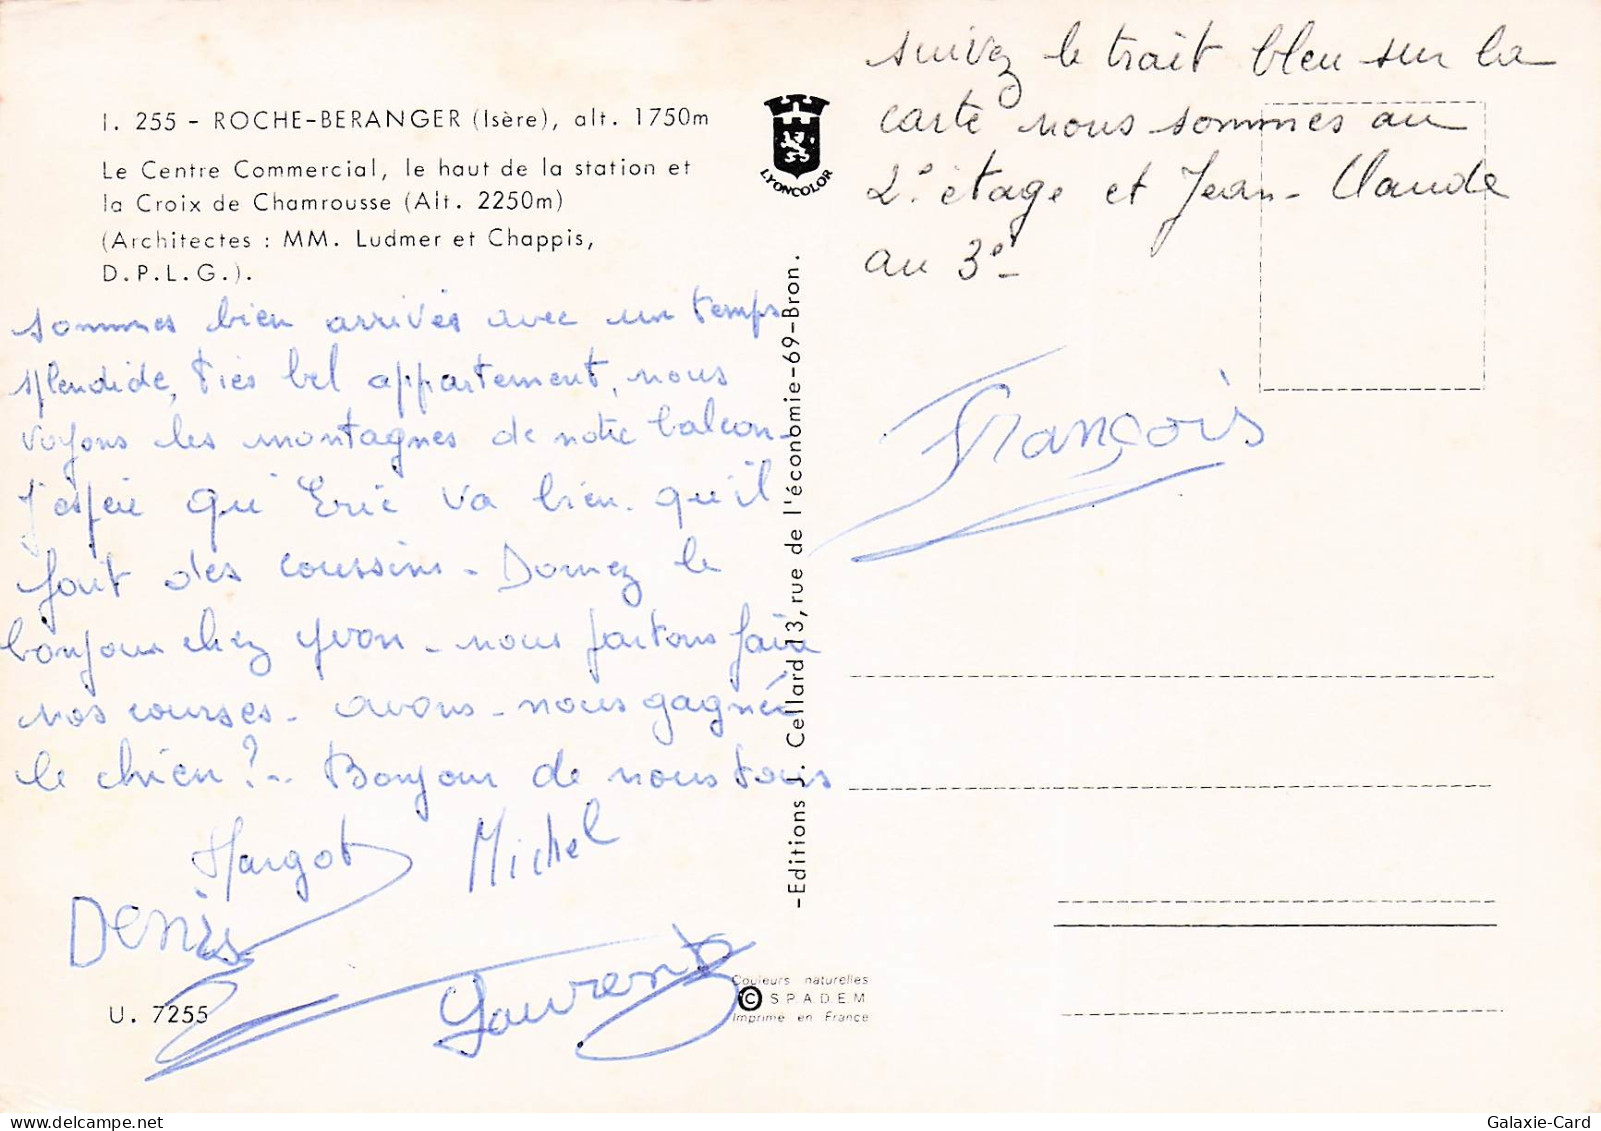 I. 255 - ROCHE-BERANGER (Isère), alt. 1750m
Le Centre Commercial, le haut de la station et
la Croix de Chamrousse (Alt. 2250m)
(Architectes : MM. Ludmer et Chappis,
D.P.L.G.).
sommes bien arrivés avec un temps
splendide, très bel appartement, nous
voyons les montagnes de notre balcon -
J'espère qu'Eric va bien. qu'il
fait des coussins - Donnez le
bonjour chez Yvon - nous partons faire
nos courses - avons-nous gagné
le chien ? - Bonjour de nous tous
Margot Michel
Denis
Laurent
U. 7255
LYONCOLOR
-Editions J. Cellard 13, rue de l'économie-69-Bron.
Couleurs naturelles
© S.P.A.D.E.M.
Imprimé en France
suivez le trait bleu sur la
carte nous sommes au
2e étage et Jean-Claude
au 3e -
François
Galaxie-Card